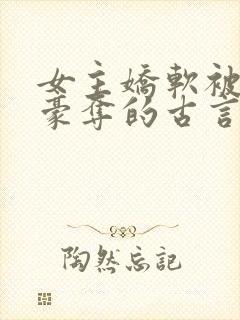 女主嬌軟被
豪奪的古言
陶然忘記